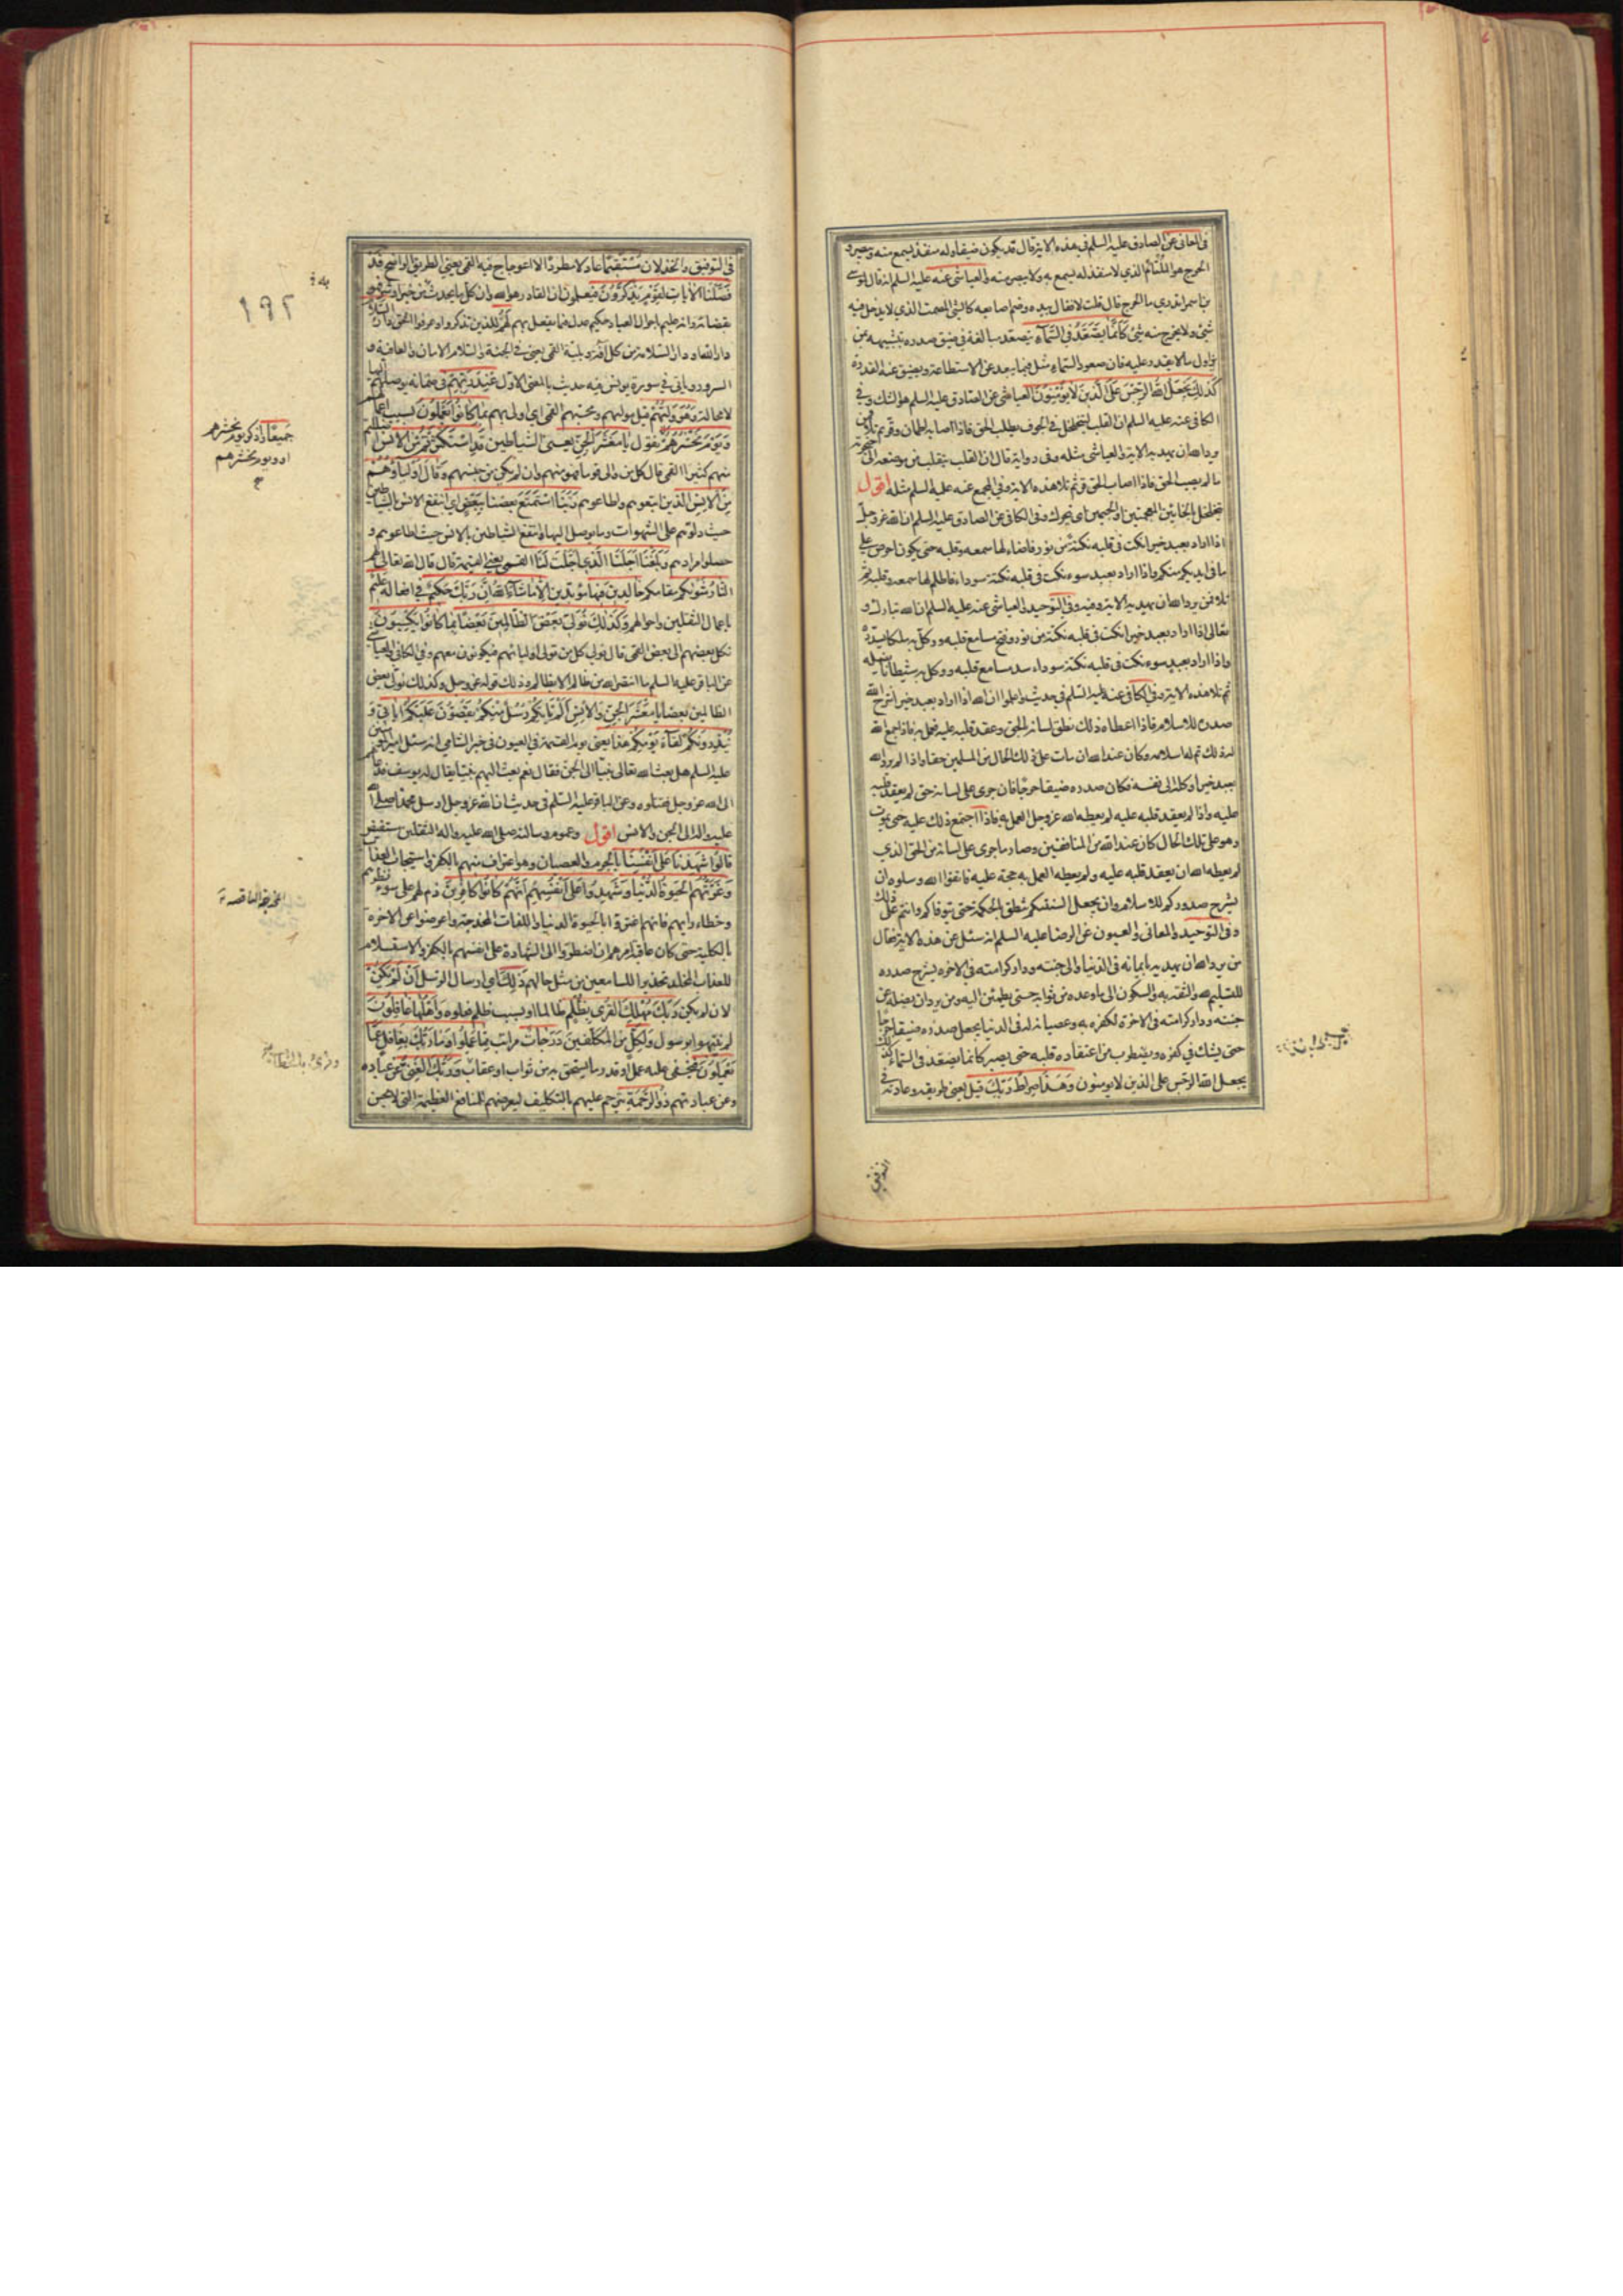 في المعاني عن الصادق عليه السلم في هذه الاية قال قد يكون ضيقا وله منفذ يسمع منه ويبصر و
الحرج هو الملتئم الذي لا منفذ له يسمع به ولا يبصر منه والعياشي عنه عليه السلم انه قال لموسى
بن اسم اتدري ما الحرج قال قلت لا فقال بيده وضم اصابعه كالشئ المصمت الذي لا يدخل فيه
شئ ولا يخرج منه شئ كَأَنَّمَا يَصَّعَّدُ فِي السَّمَآءِ يتصعد مبالغة في ضيق صدره بتشبيهه بمن
يزاول ما لا يقدر عليه فان صعود السماء مثل فيما يبعد عن الاستطاعة ويضيق عنه القدرة
كَذَلِكَ يَجْعَلُ اللهُ الرِّجْسَ عَلَى الَّذِينَ لَا يُؤْمِنُونَ العياشي عن الصادق عليه السلم هو الشك وفي
الكافي عنه عليه السلم ان القلب ليتخلخل في الجوف يطلب الحق فاذا اصابه اطمان وقر ثم تلا فمن
يرد الله ان يهديه الاية والعياشي مثله وفي رواية قال ان القلب يتقلب من موضعه الى حنجرته
ما لم يصب الحق فاذا اصاب الحق قر ثم تلا هذه الاية وفي المجمع عنه عليه السلم مثله اقول
يتخلخل بالخائين المعجمتين او الجيمين اي يتحرك وفي الكافي عن الصادق عليه السلم ان الله عز وجل
اذا اراد بعبد خيرا نكت في قلبه نكتة من نور فاضاء لها سمعه وقلبه حتى يكون احرص على
ما في ايديكم منكم واذا اراد بعبد سوء نكت في قلبه نكتة سوداء فاظلم لها سمعه وقلبه ثم
تلا فمن يرد الله ان يهديه الاية وفيه وفي التوحيد والعياشي عنه عليه السلم ان الله تبارك و
تعالى اذا اراد بعبد خيرا نكت في قلبه نكتة من نور وفتح مسامع قلبه ووكل به ملكا يسدده
واذا اراد بعبد سوء نكت في قلبه نكتة سوداء وسد مسامع قلبه ووكل به شيطانا يضله
ثم تلا هذه الاية وفي الكافي عنه عليه السلم في حديث واعلموا ان الله اذا اراد بعبد خيرا شرح الله
صدره للاسلام فاذا اعطاه ذلك نطق لسانه بالحق وعقد قلبه عليه فعمل به فاذا جمع الله
له ذلك تم له اسلامه وكان عند الله ان مات على ذلك الحال من المسلمين حقا واذا لم يرد الله
بعبد خيرا وكله الى نفسه فكان صدره ضيقا حرجا فان جرى على لسانه حق لم يعقد قلبه
عليه واذا لم يعقد قلبه عليه لم يعطه الله عز وجل العمل به فاذا اجتمع ذلك عليه حتى يموت
وهو على تلك الحال كان عند الله من المنافقين وصار ما جرى على لسانه من الحق الذي
لم يعطه الله ان يعقد قلبه عليه ولم يعطه العمل به حجة عليه فاتقوا الله وسلوه ان
يشرح صدوركم للاسلام وان يجعل السنتكم تنطق بالحكمة حتى يتوفاكم وانتم على ذلك
وفي التوحيد والمعاني والعيون عن الرضا عليه السلم انه سئل عن هذه الاية فقال
من يرد الله ان يهديه بايمانه في الدنيا والى جنته ودار كرامته في الاخرة يشرح صدره
للتسليم لله والثقة به والسكون الى ما وعده من ثوابه حتى يطمئن اليه ومن يرد ان يضله عن
جنته ودار كرامته في الاخرة لكفره به وعصيانه له في الدنيا يجعل صدره ضيقا حرجا
حتى يشك في كفره ويضطرب من اعتقاده قلبه حتى يصير كانما يصعد في السماء كذلك
يجعل الله الرجس على الذين لا يؤمنون وَهَذَا صِرَاطُ رَبِّكَ قيل يعني طريقه وعادته في
التوفيق
في التوفيق والخذلان مُسْتَقِيمًا عادلا مطردا لا اعوجاج فيه القمي يعني الطريق الواضح قَدْ
فَصَّلْنَا الْآيَاتِ لِقَوْمٍ يَذَّكَّرُونَ فيعلمون ان القادر هو الله وان كل ما يحدث من خير او شر فهو
بقضائه وانه عليم باحوال العباد حكيم عدل فيما يفعل بهم لَهُمْ للذين تذكروا وعرفوا الحق دَارُ السَّلَامِ
دار الله او دار السلامة من كل آفة وبلية القمي يعني في الجنة والسلام الامان والعافية و
السرور وياتي في سورة يونس فيه حديث بالمعنى الاول عِنْدَ رَبِّهِمْ في ضمانه يوصلهم اليها
لا محالة وَهُوَ وَلِيُّهُمْ قيل مواليهم ومحبتهم القمي اي اولى بهم بِمَا كَانُوا يَعْمَلُونَ بسبب اعمالهم
وَيَوْمَ يَحْشُرُهُمْ نقول يَا مَعْشَرَ الْجِنِّ يعني الشياطين قَدِ اسْتَكْثَرْتُمْ مِنَ الْإِنْسِ
منهم كثيرا القمي قال كل من والى قوما فهو منهم وان لم يكن من جنسهم وَقَالَ أَوْلِيَآؤُهُمْ
مِنَ الْإِنْسِ الذين اتبعوهم واطاعوهم رَبَّنَا اسْتَمْتَعَ بَعْضُنَا بِبَعْضٍ اي انتفع الانس بالشياطين
حيث دلوهم على الشهوات وما يوصل اليها وانتفع الشياطين بالانس حيث اطاعوهم و
حصلوا مرادهم وَبَلَغْنَا أَجَلَنَا الَّذِي أَجَّلْتَ لَنَا القمي يعني القيمة قَالَ قال الله تعالى لهم
النَّارُ مَثْوَاكُمْ مقامكم خَالِدِينَ فِيهَا مؤبدين إِلَّا مَا شَآءَ اللهُ إِنَّ رَبَّكَ حَكِيمٌ في افعاله عَلِيمٌ
باعمال الثقلين واحوالهم وَكَذَلِكَ نُوَلِّي بَعْضَ الظَّالِمِينَ بَعْضًا بِمَا كَانُوا يَكْسِبُونَ
نكل بعضهم الى بعض القمي قال نولي كل من تولى اولياءهم فيكونون معهم وفي الكافي والعياشي
عن الباقر عليه السلم ما انتصر الله من ظالم الا بظالم وذلك قوله عز وجل وكذلك نولي بعض
الظالمين بعضا يَا مَعْشَرَ الْجِنِّ وَالْإِنْسِ أَلَمْ يَأْتِكُمْ رُسُلٌ مِنْكُمْ يَقُصُّونَ عَلَيْكُمْ آيَاتِي وَ
يُنْذِرُونَكُمْ لِقَآءَ يَوْمِكُمْ هَذَا يعني يوم القيمة في العيون في خبر الشامي انه سئل امير المؤمنين
عليه السلم هل بعث الله تعالى نبيا الى الجن فقال نعم بعث اليهم نبيا يقال له يوسف فدعاهم
الى الله عز وجل فقتلوه وعن الباقر عليه السلم في حديث ان الله عز وجل ارسل محمدا صلى الله
عليه واله الى الجن والانس اقول وعموم رسالته صلى الله عليه واله الثقلين مستفيض
قَالُوا شَهِدْنَا عَلَى أَنْفُسِنَا بالجرم والعصيان وهو اعتراف منهم بالكفر واستيجاب العذاب
وَغَرَّتْهُمُ الْحَيَوةُ الدُّنْيَا وَشَهِدُوا عَلَى أَنْفُسِهِمْ أَنَّهُمْ كَانُوا كَافِرِينَ ذم لهم على سوء نظرهم
وخطاء رايهم فانهم اغتروا بالحيوة الدنيا واللذات المخدجة واعرضوا عن الاخرة
بالكلية حتى كان عاقبة امرهم ان اضطروا الى الشهادة على انفسهم بالكفر والاستسلام
للعذاب المخلد تحذيرا للسامعين من مثل حالهم ذَلِكَ اي ارسال الرسل أَنْ لَمْ يَكُنْ
لان لم يكن رَبُّكَ مُهْلِكَ الْقُرَى بِظُلْمٍ ظالما او بسبب ظلم فعلوه وَأَهْلُهَا غَافِلُونَ
لم ينبهوا برسول وَلِكُلٍّ من المكلفين دَرَجَاتٌ مراتب مِمَّا عَمِلُوا وَمَا رَبُّكَ بِغَافِلٍ عَمَّا
يَعْمَلُونَ فيخفى عليه عمل او قدر ما يستحق به من ثواب او عقاب وَرَبُّكَ الْغَنِيُّ عن عباده
وعن عبادتهم ذُو الرَّحْمَةِ يترحم عليهم بالتكليف ليعرضهم للمنافع العظيمة التي لا يحسن
١٩٢
جَمِيعًا واذكر يوم نحشرهم
او ويوم نحشرهم
المخدجة الناقصة